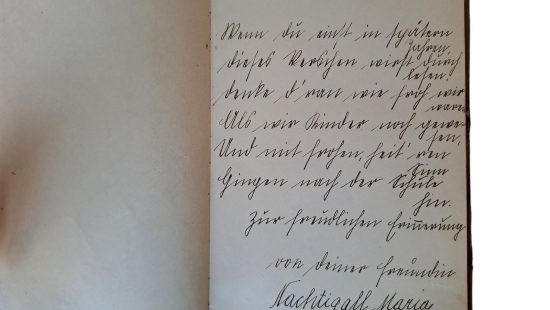 Wenn du einst in spätern
Jahren,
dieses Verschen wirst durch
lesen.
denke d'ran wie froh wir
waren
Als wir Kinder noch gewe-
sen,
Und mit frohen, heit'ren
Sinn
Gingen nach der Schule
hin.
Zur freundlichen Erinnerung
von deiner Freundin
Nachtigall Maria